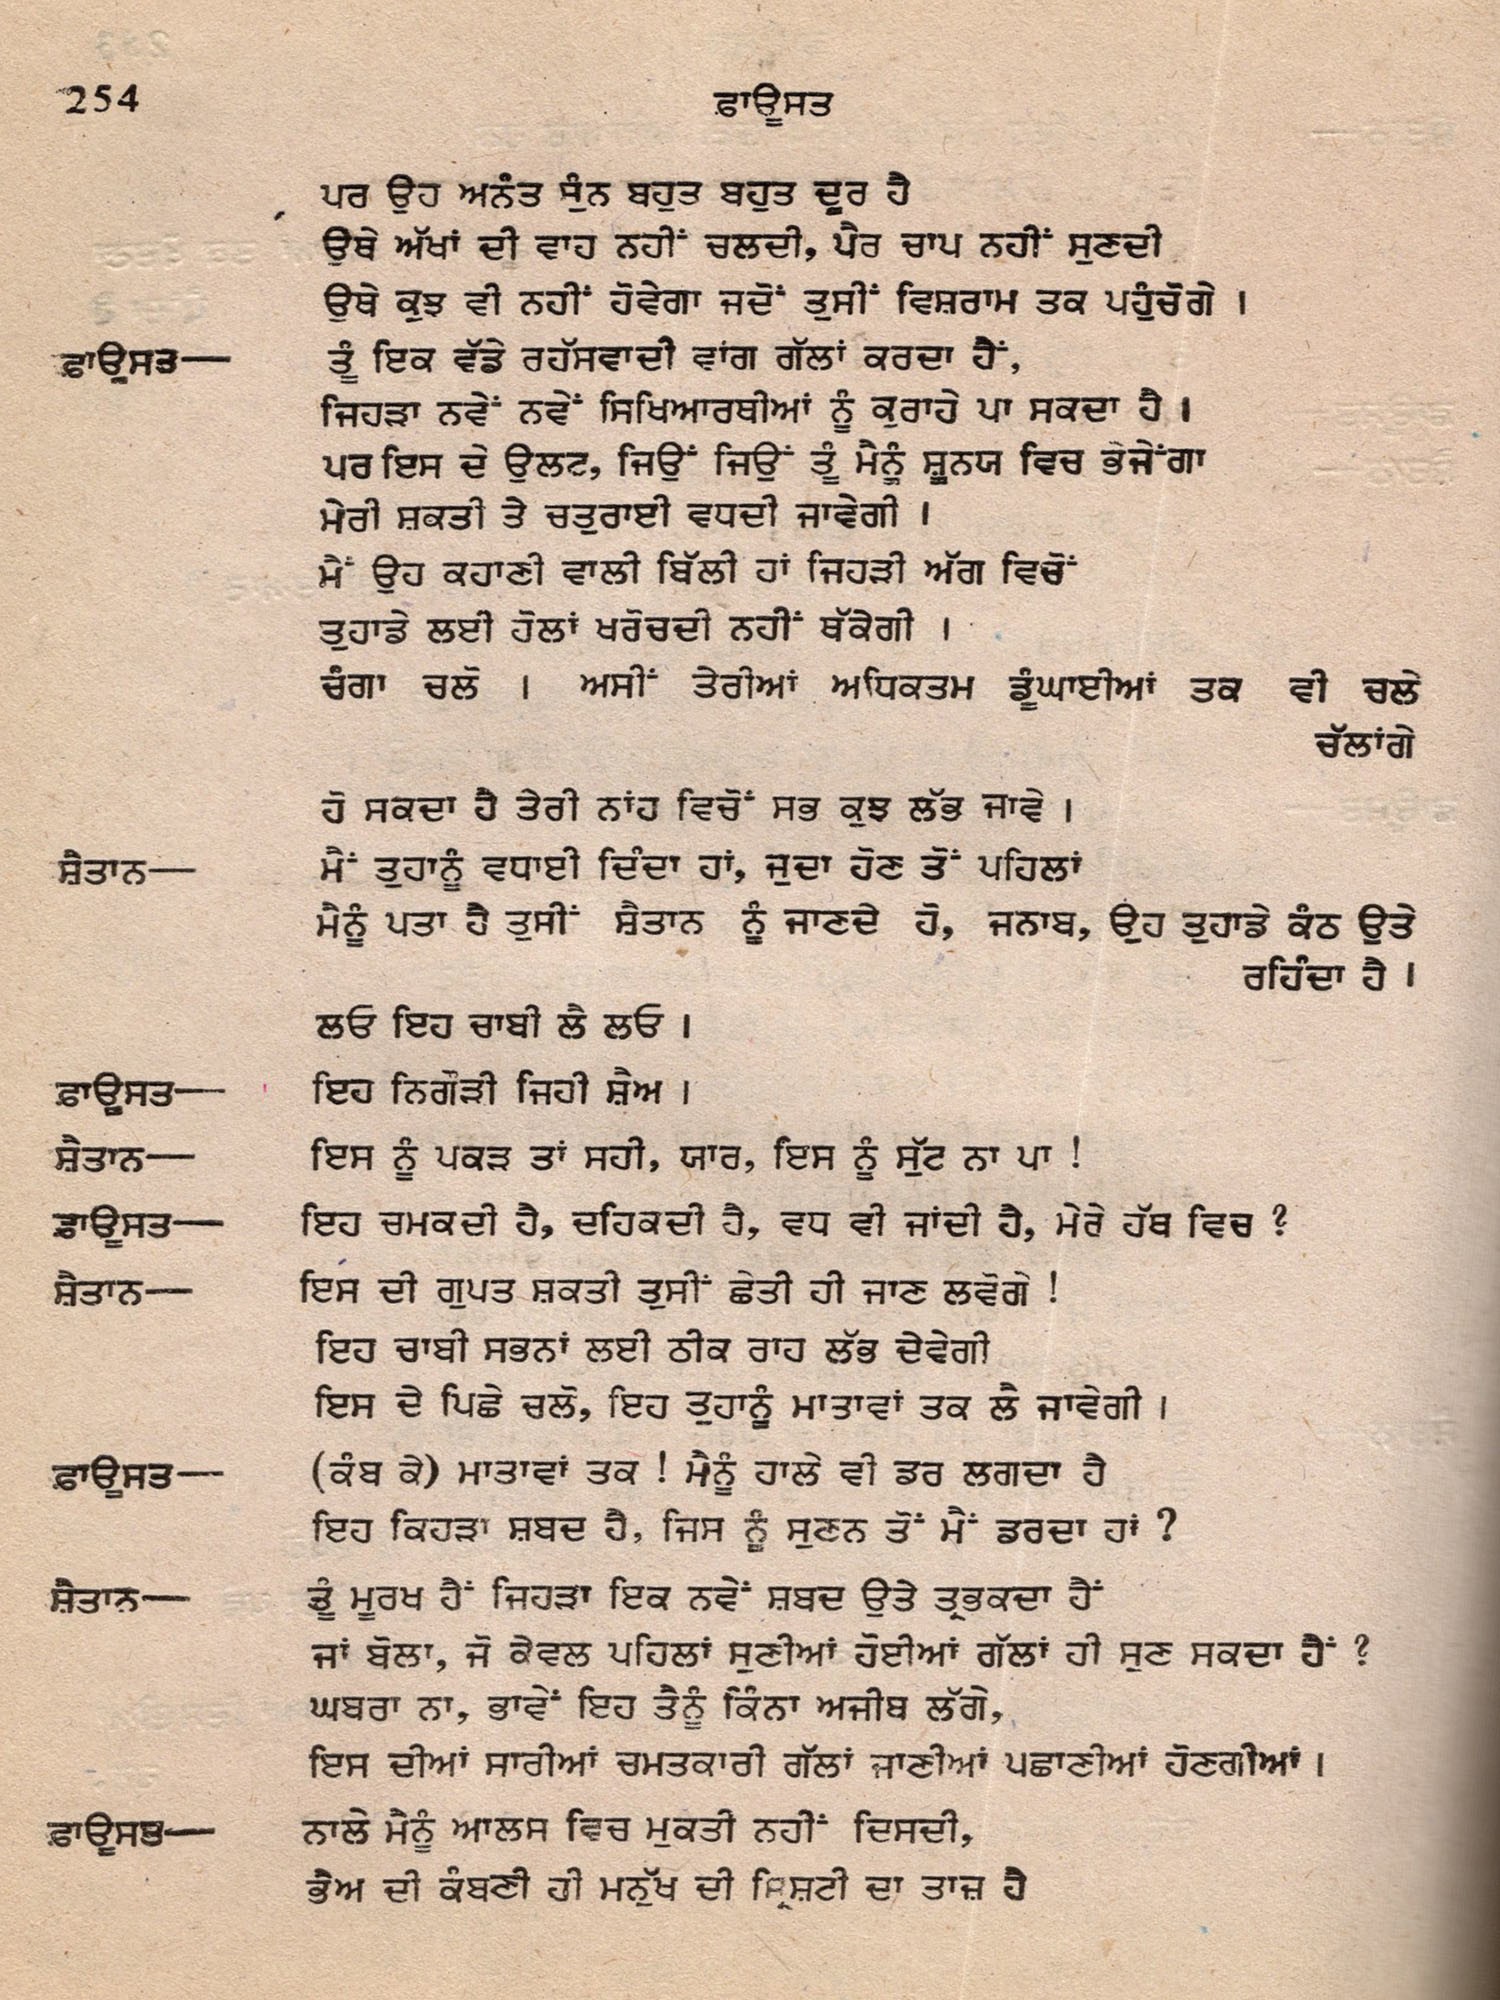 254
ਫ਼ਾਊਸਤ
ਪਰ ਉਹ ਅਨੰਤ ਸੁੰਨ ਬਹੁਤ ਬਹੁਤ ਦੂਰ ਹੈ
ਉਥੇ ਅੱਖਾਂ ਦੀ ਵਾਹ ਨਹੀਂ ਚਲਦੀ, ਪੈਰ ਚਾਪ ਨਹੀਂ ਸੁਣਦੀ
ਉਥੇ ਕੁਝ ਵੀ ਨਹੀਂ ਹੋਵੇਗਾ ਜਦੋਂ ਤੁਸੀਂ ਵਿਸ਼ਰਾਮ ਤਕ ਪਹੁੰਚੋਗੇ ।
ਫ਼ਾਊਸਤ— ਤੂੰ ਇਕ ਵੱਡੇ ਰਹੱਸਵਾਦੀ ਵਾਂਗ ਗੱਲਾਂ ਕਰਦਾ ਹੈਂ,
ਜਿਹੜਾ ਨਵੇਂ ਨਵੇਂ ਸਿਖਿਆਰਥੀਆਂ ਨੂੰ ਕੁਰਾਹੇ ਪਾ ਸਕਦਾ ਹੈ ।
ਪਰ ਇਸ ਦੇ ਉਲਟ, ਜਿਉਂ ਜਿਉਂ ਤੂੰ ਮੈਨੂੰ ਸ਼ੂਨਯ ਵਿਚ ਭੇਜੇਂਗਾ
ਮੇਰੀ ਸ਼ਕਤੀ ਤੇ ਚਤੁਰਾਈ ਵਧਦੀ ਜਾਵੇਗੀ ।
ਮੈਂ ਉਹ ਕਹਾਣੀ ਵਾਲੀ ਬਿੱਲੀ ਹਾਂ ਜਿਹੜੀ ਅੱਗ ਵਿਚੋਂ
ਤੁਹਾਡੇ ਲਈ ਹੋਲਾਂ ਖਰੋਚਦੀ ਨਹੀਂ ਥੱਕੇਗੀ ।
ਚੰਗਾ ਚਲੋ । ਅਸੀਂ ਤੇਰੀਆਂ ਅਧਿਕਤਮ ਡੂੰਘਾਈਆਂ ਤਕ ਵੀ ਚਲੇ
ਚੱਲਾਂਗੇ
ਹੋ ਸਕਦਾ ਹੈ ਤੇਰੀ ਨਾਂਹ ਵਿਚੋਂ ਸਭ ਕੁਝ ਲੱਭ ਜਾਵੇ ।
ਸ਼ੈਤਾਨ— ਮੈਂ ਤੁਹਾਨੂੰ ਵਧਾਈ ਦਿੰਦਾ ਹਾਂ, ਜੁਦਾ ਹੋਣ ਤੋਂ ਪਹਿਲਾਂ
ਮੈਨੂੰ ਪਤਾ ਹੈ ਤੁਸੀਂ ਸ਼ੈਤਾਨ ਨੂੰ ਜਾਣਦੇ ਹੋ, ਜਨਾਬ, ਉਹ ਤੁਹਾਡੇ ਕੰਠ ਉਤੇ
ਰਹਿੰਦਾ ਹੈ ।
ਲਓ ਇਹ ਚਾਬੀ ਲੈ ਲਓ ।
ਫ਼ਾਊਸਤ— ਇਹ ਨਿਗੌੜੀ ਜਿਹੀ ਸ਼ੈਅ ।
ਸ਼ੈਤਾਨ— ਇਸ ਨੂੰ ਪਕੜ ਤਾਂ ਸਹੀ, ਯਾਰ, ਇਸ ਨੂੰ ਸੁੱਟ ਨਾ ਪਾ !
ਫ਼ਾਊਸਤ— ਇਹ ਚਮਕਦੀ ਹੈ, ਦਹਿਕਦੀ ਹੈ, ਵਧ ਵੀ ਜਾਂਦੀ ਹੈ, ਮੇਰੇ ਹੱਥ ਵਿਚ ?
ਸ਼ੈਤਾਨ— ਇਸ ਦੀ ਗੁਪਤ ਸ਼ਕਤੀ ਤੁਸੀਂ ਛੇਤੀ ਹੀ ਜਾਣ ਲਵੋਗੇ !
ਇਹ ਚਾਬੀ ਸਭਨਾਂ ਲਈ ਠੀਕ ਰਾਹ ਲੱਭ ਦੇਵੇਗੀ
ਇਸ ਦੇ ਪਿਛੇ ਚਲੋ, ਇਹ ਤੁਹਾਨੂੰ ਮਾਤਾਵਾਂ ਤਕ ਲੈ ਜਾਵੇਗੀ ।
ਫ਼ਾਊਸਤ— (ਕੰਬ ਕੇ) ਮਾਤਾਵਾਂ ਤਕ ! ਮੈਨੂੰ ਹਾਲੇ ਵੀ ਡਰ ਲਗਦਾ ਹੈ
ਇਹ ਕਿਹੜਾ ਸ਼ਬਦ ਹੈ, ਜਿਸ ਨੂੰ ਸੁਣਨ ਤੋਂ ਮੈਂ ਡਰਦਾ ਹਾਂ ?
ਸ਼ੈਤਾਨ— ਤੂੰ ਮੂਰਖ ਹੈਂ ਜਿਹੜਾ ਇਕ ਨਵੇਂ ਸ਼ਬਦ ਉਤੇ ਤ੍ਰਭਕਦਾ ਹੈਂ
ਜਾਂ ਬੋਲਾ, ਜੋ ਕੇਵਲ ਪਹਿਲਾਂ ਸੁਣੀਆਂ ਹੋਈਆਂ ਗੱਲਾਂ ਹੀ ਸੁਣ ਸਕਦਾ ਹੈਂ ?
ਘਬਰਾ ਨਾ, ਭਾਵੇਂ ਇਹ ਤੈਨੂੰ ਕਿੰਨਾ ਅਜੀਬ ਲੱਗੇ,
ਇਸ ਦੀਆਂ ਸਾਰੀਆਂ ਚਮਤਕਾਰੀ ਗੱਲਾਂ ਜਾਣੀਆਂ ਪਛਾਣੀਆਂ ਹੋਣਗੀਆਂ ।
ਫ਼ਾਊਸਤ— ਨਾਲੇ ਮੈਨੂੰ ਆਲਸ ਵਿਚ ਮੁਕਤੀ ਨਹੀਂ ਦਿਸਦੀ,
ਭੈਅ ਦੀ ਕੰਬਣੀ ਹੀ ਮਨੁੱਖ ਦੀ ਸ੍ਰਿਸ਼ਟੀ ਦਾ ਤਾਜ਼ ਹੈ